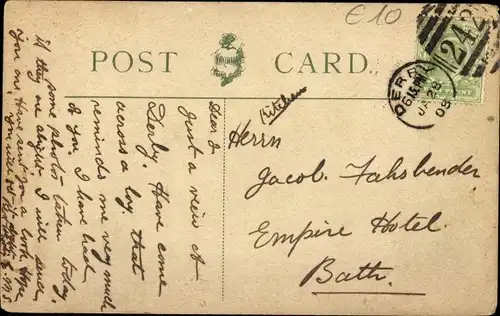 £10
POST CARD.
242
DERBY
6 15 PM
JA 28
08
Kitchen
Herrn
Jacob. Fahsbender
Empire Hotel.
Bath.
Dear J.
Just a view of
Derby. Have come
across a boy that
reminds me very much
of you. I have had
some photos taken today.
if they are alright I will send
you one. Have sent you a book. Hope
you will